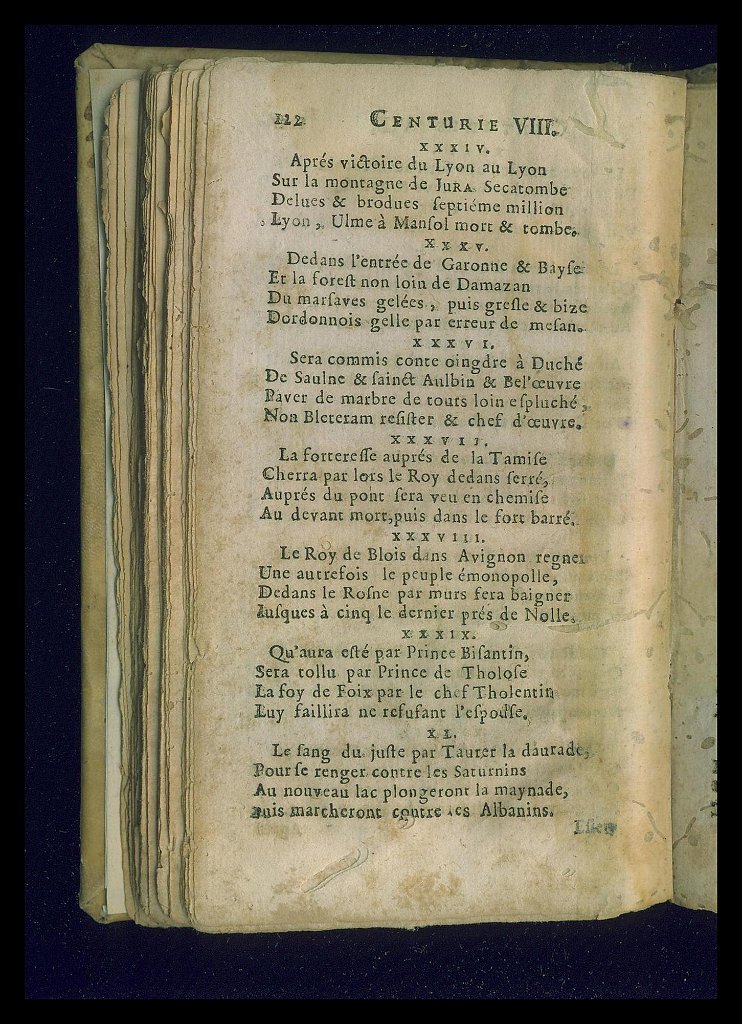 122 CENTURIE VIII.
XXXIV.
Aprés victoire du Lyon au Lyon
Sur la montagne de JURA Secatombe
Delues & brodues septiéme million
Lyon, Ulme à Mansol mort & tombe.
XXXV.
Dedans l'entrée de Garonne & Bayse
Et la forest non loin de Damazan
Du marsaves gelées, puis gresle & bize
Dordonnois gelle par erreur de mesan.
XXXVI.
Sera commis conte oingdre à Duché
De Saulne & sainct Aulbin & Bel'œuvre
Paver de marbre de tours loin espluché,
Non Bleteram resister & chef d'œuvre.
XXXVII.
La forteresse auprés de la Tamise
Cherra par lors le Roy dedans serré,
Auprés du pont sera veu en chemise
Au devant mort, puis dans le fort barré.
XXXVIII.
Le Roy de Blois dans Avignon regner
Une autrefois le peuple émonopolle,
Dedans le Rosne par murs fera baigner
Iusques à cinq le dernier prés de Nolle.
XXXIX.
Qu'aura esté par Prince Bisantin,
Sera tollu par Prince de Tholose
La foy de Foix par le chef Tholentin
Luy faillira ne refusant l'espouse.
XL.
Le sang du juste par Taurer la daurade,
Pour se renger contre les Saturnins
Au nouveau lac plongeront la maynade,
Puis marcheront contre les Albanins.